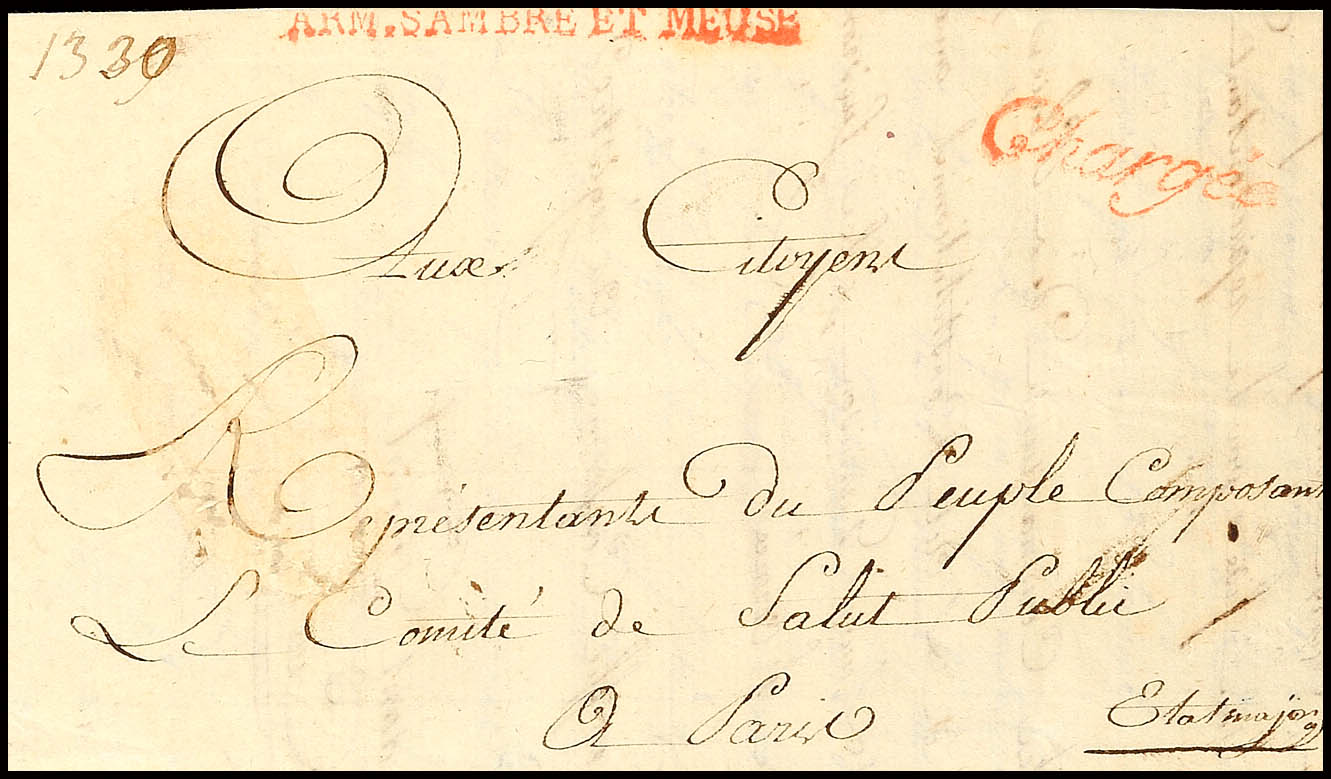 ARM. SAMBRE ET MEUSE
Chargée
Aux Citoyens
Représentants du Peuple Composant
Le Comité de Salut Public
A Paris
Etatmajor